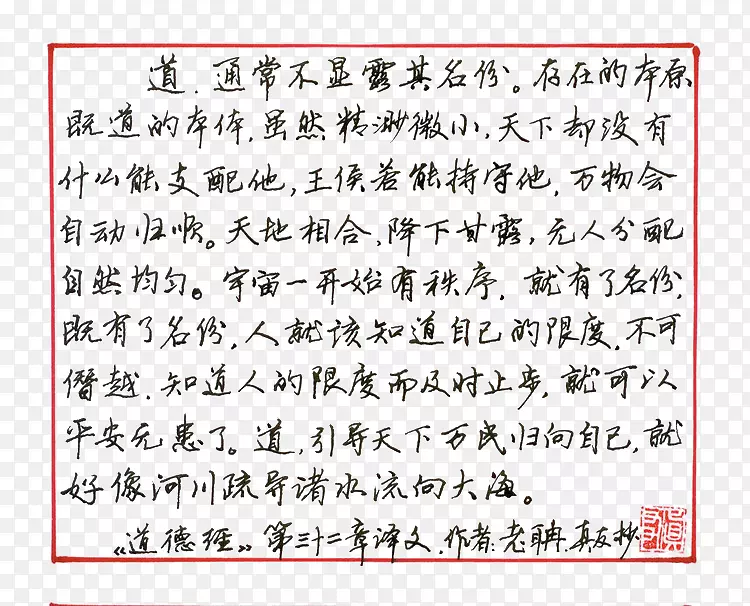 道.通常不显露其名份。存在的本原
既道的本体.虽然精渺微小,天下却没有
什么能支配他,王侯若能持守他,万物会
自动归顺。天地相合,降下甘露,无人分配
自然均匀。宇宙一开始有秩序,就有了名份,
既有了名份,人就该知道自己的限度,不可
僭越.知道人的限度而及时止步,就可以
平安无患了。道,引导天下万民归向自己,就
好像河川疏导诸水流向大海。
《道德经》第三十二章译文.作者:老聃.真友抄